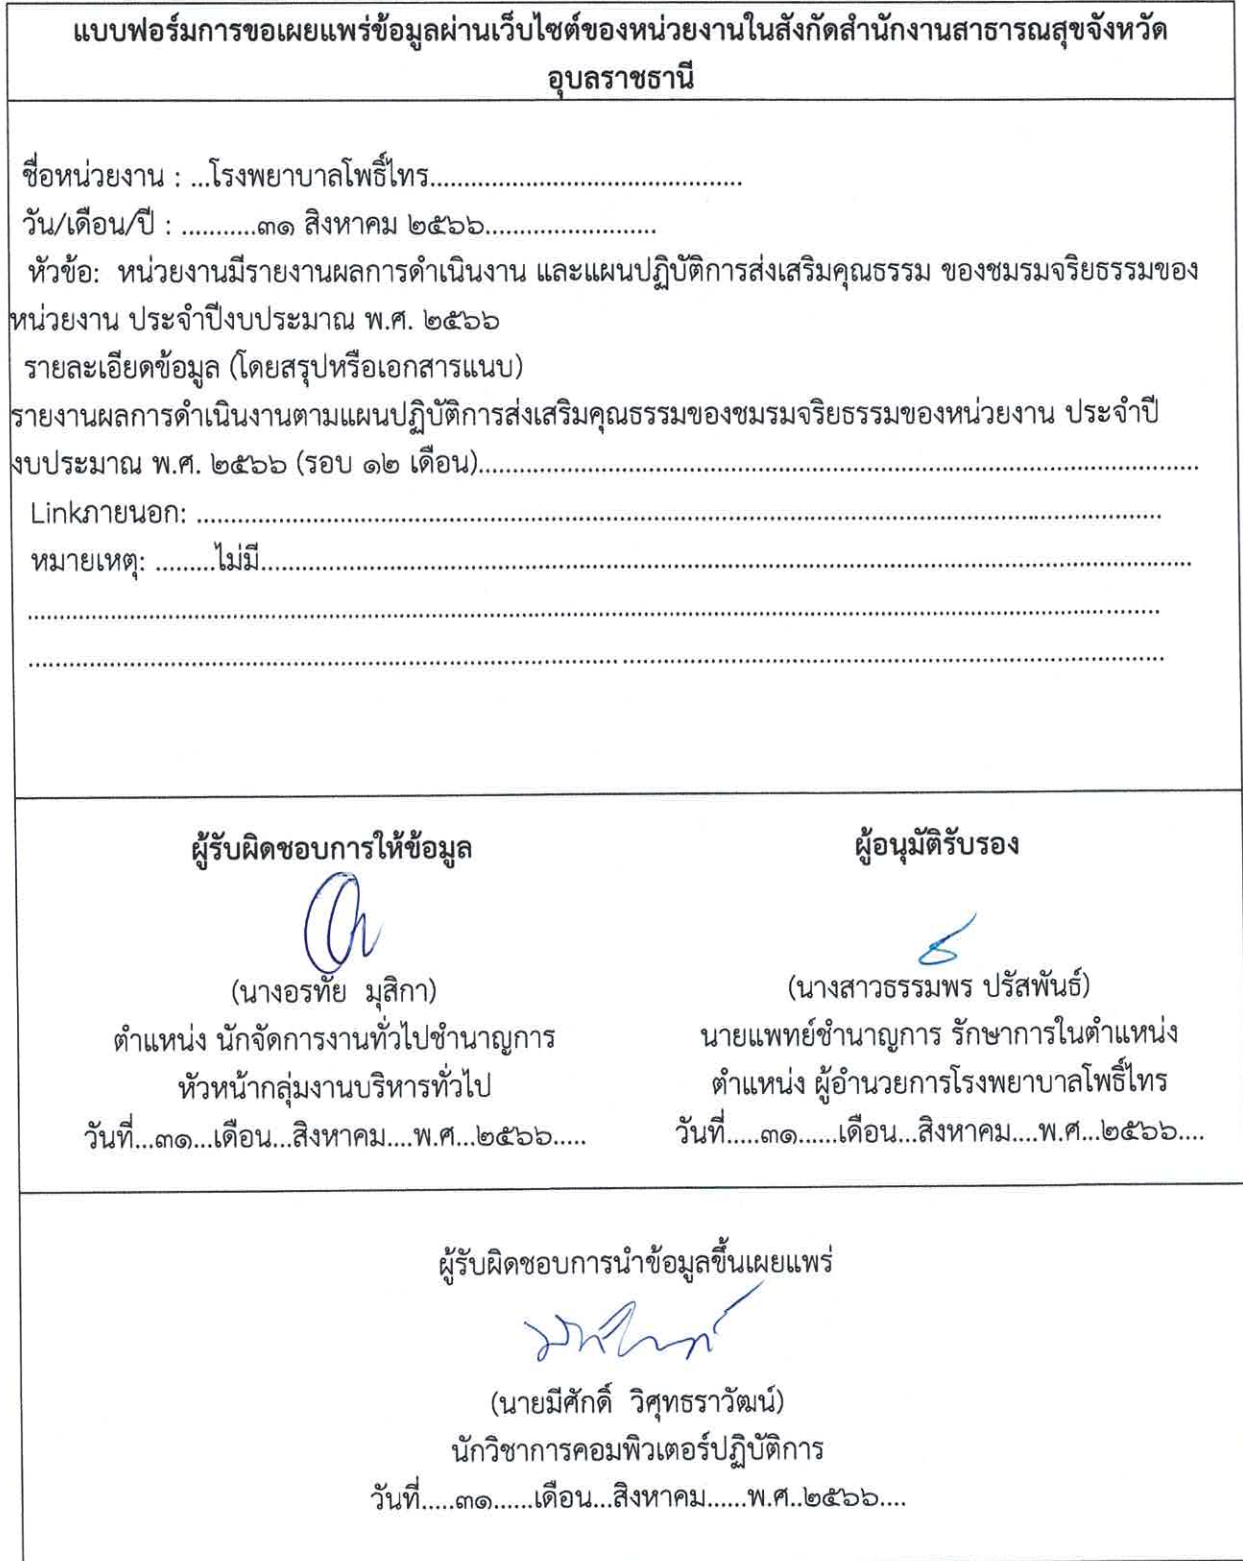 แบบฟอร์มการขอเผยแพร่ข้อมูลผ่านเว็บไซต์ของหน่วยงานในสังกัดสำนักงานสาธารณสุขจังหวัด
อุบลราชธานี
ชื่อหน่วยงาน : ...โรงพยาบาลโพธิ์ไทร..............................................
วัน/เดือน/ปี : ...........๓๑ สิงหาคม ๒๕๖๖.........................
หัวข้อ: หน่วยงานมีรายงานผลการดำเนินงาน และแผนปฏิบัติการส่งเสริมคุณธรรม ของชมรมจริยธรรมของ
หน่วยงาน ประจำปีงบประมาณ พ.ศ. ๒๕๖๖
รายละเอียดข้อมูล (โดยสรุปหรือเอกสารแนบ)
รายงานผลการดำเนินงานตามแผนปฏิบัติการส่งเสริมคุณธรรมของชมรมจริยธรรมของหน่วยงาน ประจำปี
งบประมาณ พ.ศ. ๒๕๖๖ (รอบ ๑๒ เดือน)..........................................................................................................
Linkภายนอก: ..............................................................................................................................................
หมายเหตุ: .........ไม่มี.........................................................................................................................................
ผู้รับผิดชอบการให้ข้อมูล
(นางอรทัย มุสิกา)
ตำแหน่ง นักจัดการงานทั่วไปชำนาญการ
หัวหน้ากลุ่มงานบริหารทั่วไป
วันที่...๓๑...เดือน...สิงหาคม....พ.ศ...๒๕๖๖.....
ผู้อนุมัติรับรอง
(นางสาวธรรมพร ปรัสพันธ์)
นายแพทย์ชำนาญการ รักษาการในตำแหน่ง
ตำแหน่ง ผู้อำนวยการโรงพยาบาลโพธิ์ไทร
วันที่.....๓๑......เดือน...สิงหาคม....พ.ศ...๒๕๖๖....
ผู้รับผิดชอบการนำข้อมูลขึ้นเผยแพร่
(นายมีศักดิ์ วิศุทธราวัฒน์)
นักวิชาการคอมพิวเตอร์ปฏิบัติการ
วันที่.....๓๑......เดือน...สิงหาคม......พ.ศ..๒๕๖๖....